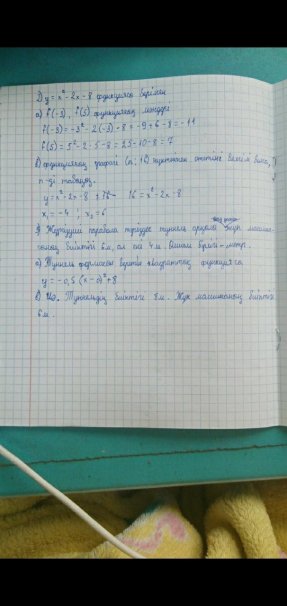 2) y = x² - 2x - 8 функциясы берілген
а) f(-3), f(5) функцияның мәндері
f(-3) = -3² - 2(-3) - 8 = -9 + 6 - 8 = -11
f(5) = 5² - 2·5 - 8 = 25 - 10 - 8 = 7
в) функцияның графигі (n; 16) нүктесінен өтетіні белгілі болса,
n-ді табыңыз.
y = x² - 2x - 8 16 = x² - 2x - 8
x₁ = -4 , x₂ = 6
3) парабола түрінде туннель арқылы жүк
биіктігі 6 м, ал ені 4 м бірлігі - метр.
а) Туннель формасы беретін квадраттық функция
y = -0,5 (x - 0)² + 8
в) Иә. Туннельдің биіктігі 8 м. Жүк машинаның биіктігі
6 м.